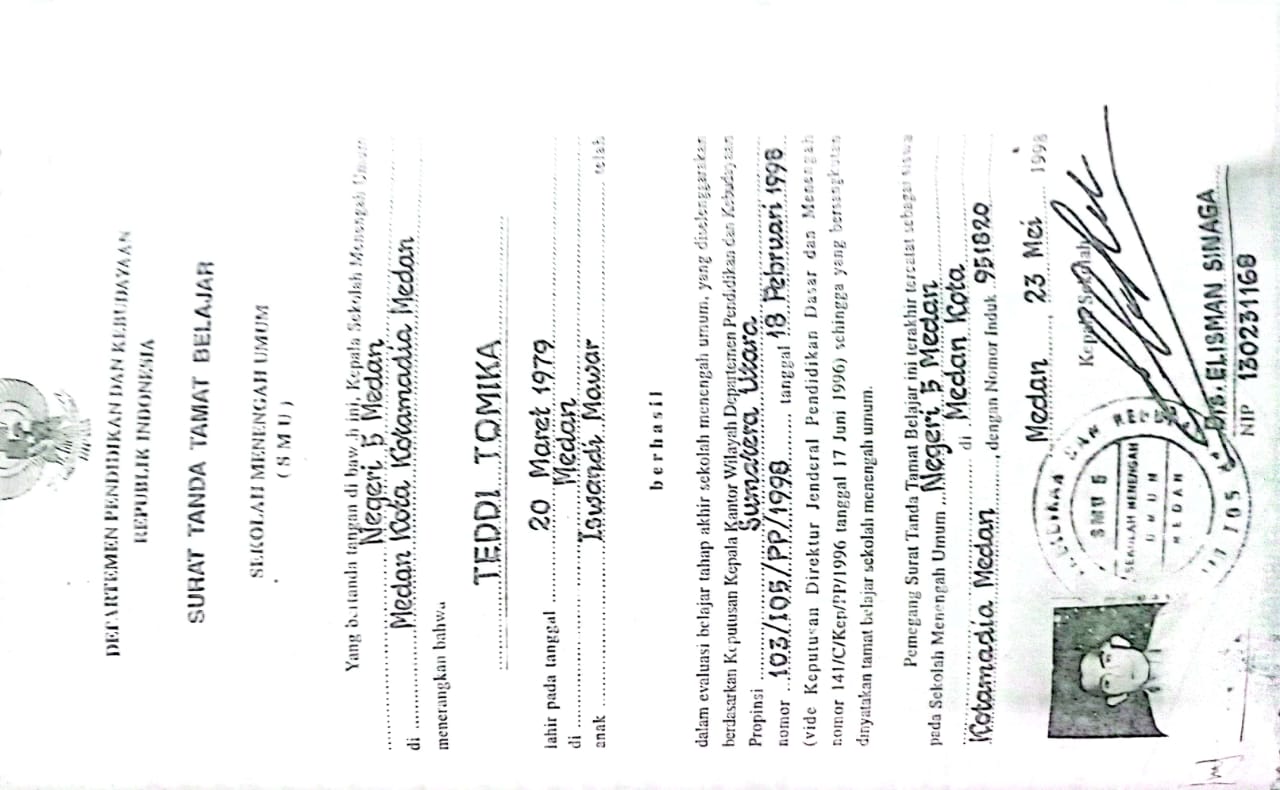 DEPARTEMEN PENDIDIKAN DAN KEBUDAYAAN
REPUBLIK INDONESIA
SURAT TANDA TAMAT BELAJAR
SEKOLAH MENENGAH UMUM
( S M U )
Yang bertanda tangan di bawah ini, Kepala Sekolah Menengah Umum
Negeri 5 Medan
di Medan Kota Kotamadia Medan
menerangkan bahwa
TEDDI TOMIKA
lahir pada tanggal 20 Maret 1979
di Medan
anak Iswandi Mawar telah
berhasil
dalam evaluasi belajar tahap akhir sekolah menengah umum, yang diselenggarakan
berdasarkan Keputusan Kepala Kantor Wilayah Departemen Pendidikan dan Kebudayaan
Propinsi Sumatera Utara
nomor 103/I05/PP/1998 tanggal 18 Pebruari 1998
(vide Keputusan Direktur Jenderal Pendidikan Dasar dan Menengah
nomor 141/C/Kep/PP/1996 tanggal 17 Juni 1996) sehingga yang bersangkutan
dinyatakan tamat belajar sekolah menengah umum.
Pemegang Surat Tanda Tamat Belajar ini terakhir tercatat sebagai siswa
pada Sekolah Menengah Umum Negeri 5 Medan
di Medan Kota
Kotamadia Medan, dengan Nomor Induk 951820
Medan, 23 Mei 1998
Kepala Sekolah
SMU 5
SEKOLAH MENENGAH
UMUM
MEDAN
I05
Drs. ELISMAN SINAGA
NIP 130231168